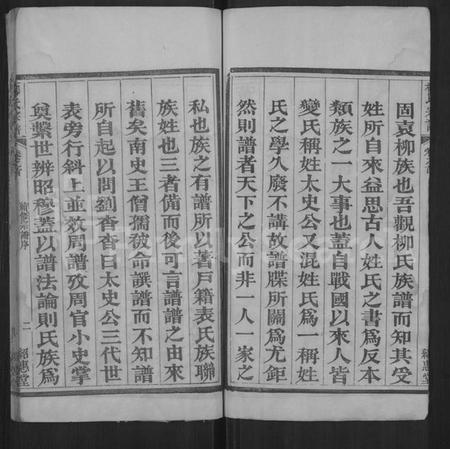 固袁柳族也吾觀柳氏族譜而知其受
姓所自來益思古人姓氏之書爲反本
類族之一大事也蓋自戰國以來人皆
變氏稱姓太史公又混姓氏爲一稱姓
氏之學久廢不講故譜牒所關爲尤鉅
然則譜者天下之公而非一人一家之
私也族之有譜所以著戶籍表氏族聯
族姓也三者備而後可言譜譜之由來
舊矣南史王僧孺被命譔譜而不知譜
所自起以問劉杳杳曰太史公三代世
表旁行斜上並效周譜攷周官小史掌
奠繫世辨昭穆蓋以譜法論則氏族爲
二
紹惠堂